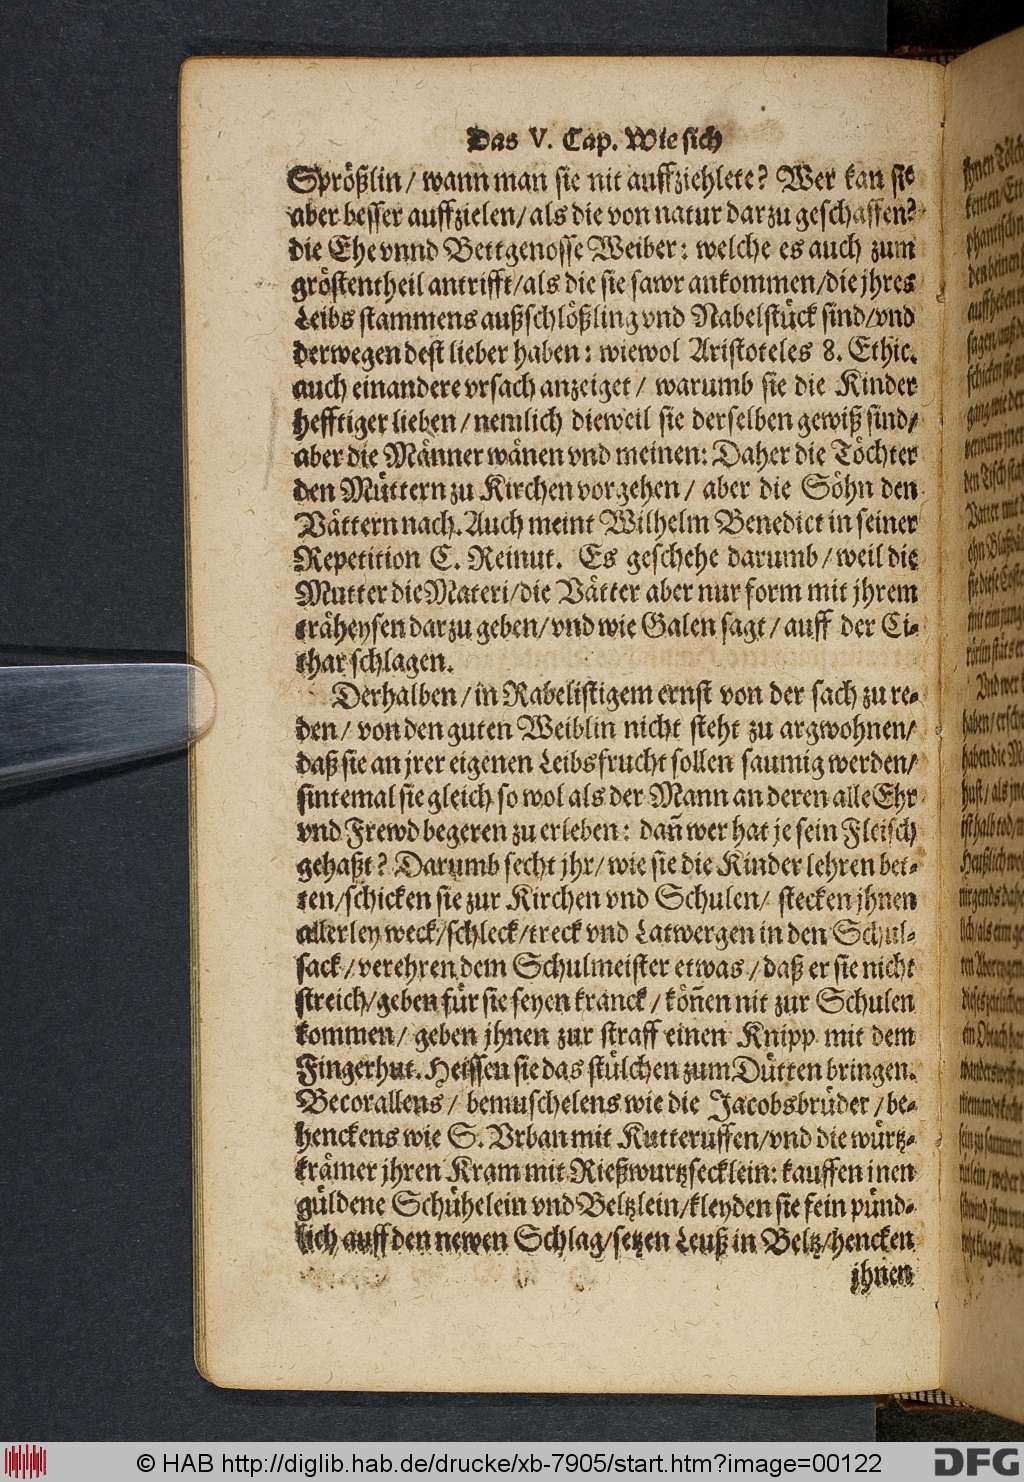 Das V. Cap. Wie sich
Sprößlin / wann man sie nit auffziehlete? Wer kan sie
aber besser auffzielen / als die von natur darzu geschaffen?
die Ehe vnnd Bettgenosse Weiber: welche es auch zum
gröstentheil antrifft / als die sie sawr ankommen / die jhres
Leibs stammens außschlößling vnd Nabelstück sind / vnd
derwegen dest lieber haben: wiewol Aristoteles 8. Ethic.
auch ein andere vrsach anzeiget / warumb sie die Kinder
hefftiger lieben / nemlich dieweil sie derselben gewiß sind /
aber die Männer wänen vnd meinen: Daher die Töchter
den Müttern zu Kirchen vorgehen / aber die Söhn den
Vättern nach. Auch meint Wilhelm Benedict in seiner
Repetition C. Reinut. Es geschehe darumb / weil die
Mutter die Materi / die Vätter aber nur form mit jhrem
träheysen darzu geben / vnd wie Galen sagt / auff der Ci-
thar schlagen.
Derhalben / in Rabelistigem ernst von der sach zu re-
den / von den guten Weiblin nicht steht zu argwohnen /
daß sie an jrer eigenen Leibsfrucht sollen saumig werden /
sintemal sie gleich so wol als der Mann an deren alle Ehr
vnd Frewd begeren zu erleben: dañ wer hat je sein Fleisch
gehaßt? Darumb secht jhr / wie sie die Kinder lehren bet-
ten / schicken sie zur Kirchen vnd Schulen / stecken jhnen
allerley weck / schleck / treck vnd Latwergen in den Schul-
sack / verehren dem Schulmeister etwas / daß er sie nicht
streich / geben für sie seyen kranck / köñen nit zur Schulen
kommen / geben jhnen zur straff einen Knipp mit dem
Fingerhut. Heissen sie das stülchen zum Dütten bringen.
Becorallens / bemuschelens wie die Jacobsbrüder / be-
henckens wie S. Vrban mit Kutteruffen / vnd die würtz-
krämer jhren Kram mit Rießwurtzsecklein: kauffen inen
güldene Schühelein vnd Beltzlein / kleyden sie fein pünd-
lich auff den newen Schlag / setzen Leuß in Beltz / hencken
jhnen
© HAB http://diglib.hab.de/drucke/xb-7905/start.htm?image=00122
DFG